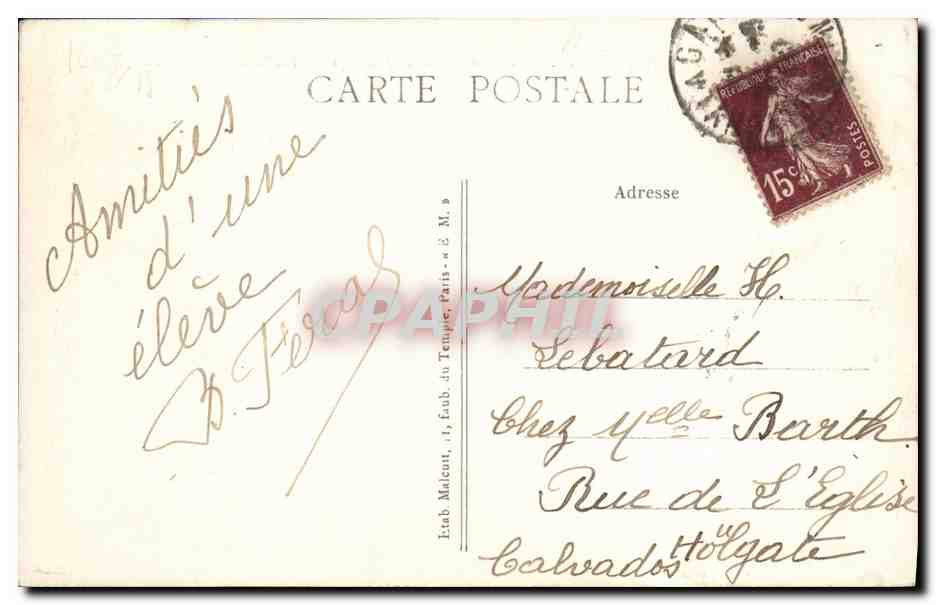 CARTE POSTALE
REPUBLIQUE FRANÇAISE
POSTES
15c
Amitiés
d'une
élève
B.
Adresse
Mademoiselle H.
Lebatard
Chez Melle Barth
Rue de L'Eglise
Calvados Houlgate
Etab. Malcuit, 41, faub. du Temple, Paris - « E M. »
CPAPHIL